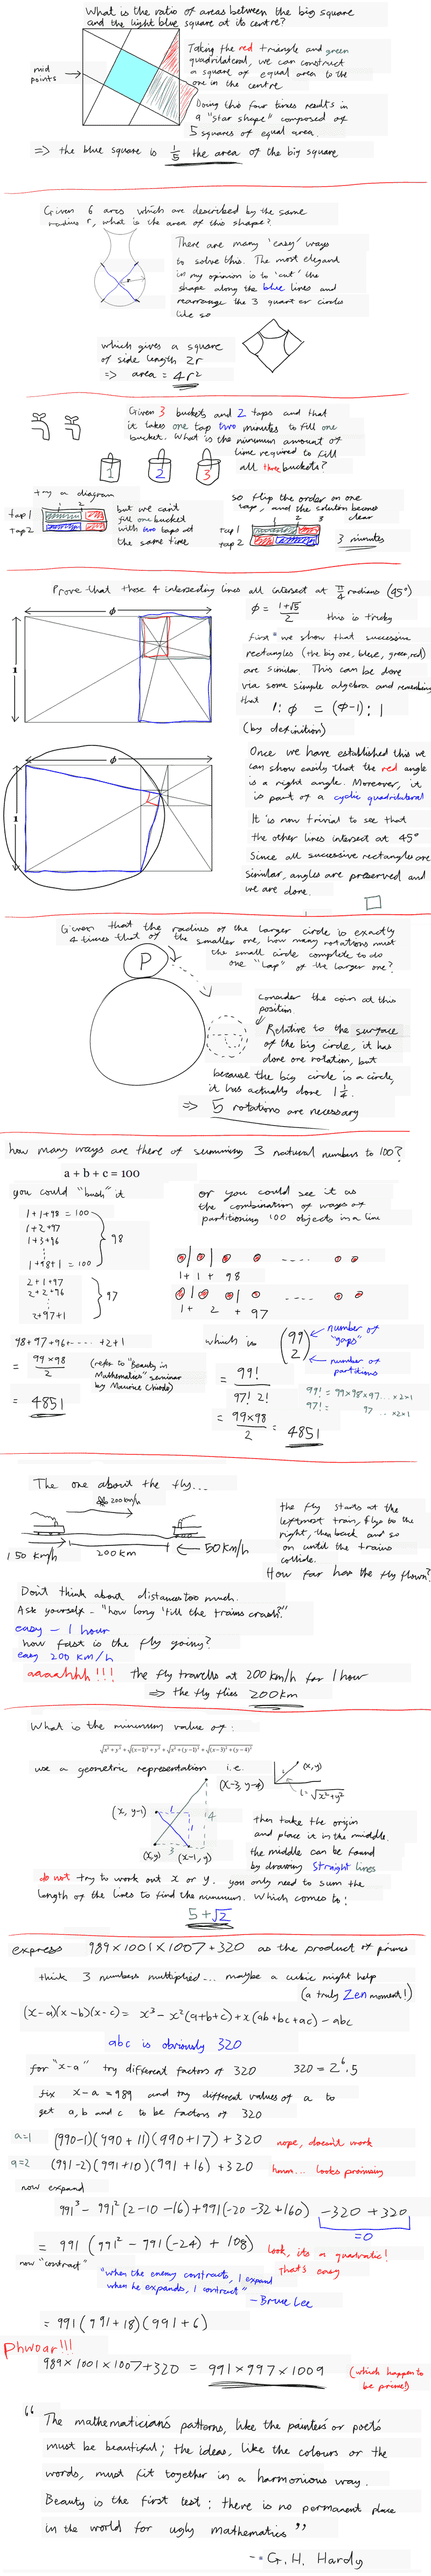 What is the ratio of areas between the big square
and the light blue square at its centre?
mid
points
Taking the red triangle and green
quadrilateral, we can construct
a square of equal area to the
one in the centre
Doing this four times results in
a "star shape" composed of
5 squares of equal area.
=> the blue square is 1/5 the area of the big square
Given 6 arcs which are described by the same
radius r, what is the area of this shape?
r
There are many 'easy' ways
to solve this. The most elegant
in my opinion is to 'cut' the
shape along the blue lines and
rearrange the 3 quarter circles
like so
which gives a square
of side length 2r
=> area = 4r²
Given 3 buckets and 2 taps and that
it takes one tap two minutes to fill one
bucket. What is the minimum amount of
time required to fill
all three buckets?
1 2 3
try a diagram
1 2
tap 1
tap 2
but we can't
fill one bucket
with two taps at
the same time
so flip the order on one
tap, and the solution becomes
clear
1 2 3
tap 1
tap 2
3 minutes
Prove that these 4 intersecting lines all intersect at π/4 radians (45°)
ϕ
1
ϕ = (1+√5)/2
this is tricky
first we show that successive
rectangles (the big one, blue, green, red)
are similar. This can be done
via some simple algebra and remembering
that
1 : ϕ = (ϕ-1) : 1
(by definition)
ϕ
1
Once we have established this we
can show easily that the red angle
is a right angle. Moreover, it
is part of a cyclic quadrilateral
It is now trivial to see that
the other lines intersect at 45°
Since all successive rectangles are
similar, angles are preserved and
we are done.
Given that the radius of the larger circle is exactly
4 times that of the smaller one, how many rotations must
the small circle complete to do
one "lap" of the larger one?
P
Consider the coin at this
position.
Relative to the surface
of the big circle, it has
done one rotation, but
because the big circle is a circle,
it has actually done 1 1/4.
=> 5 rotations are necessary
how many ways are there of summing 3 natural numbers to 100?
a + b + c = 100
you could "bash" it
1+1+98 = 100
1+2+97
1+3+96
⋮
1+98+1 = 100
98
2+1+97
2+2+96
⋮
2+97+1
97
98+97+96+ ..... +2+1
= (99×98)/2
(refer to "Beauty in
Mathematics" seminar
by Maurice Chiodo)
= 4851
or you could see it as
the combination of ways of
partitioning 100 objects in a line
1 + 1 + 98
1 + 2 + 97
which is (99 2)
number of
"gaps"
number of
partitions
= 99!/(97! 2!)
99! = 99×98×97 ... ×2×1
97! = 97 ... ×2×1
= (99×98)/2 = 4851
The one about the fly...
200km/h
150 km/h
200km
50km/h
the fly starts at the
leftmost train, flys to the
right, then back and so
on until the trains
collide.
How far has the fly flown?
Don't think about distances too much.
Ask yourself - "how long 'till the trains crash?"
easy - 1 hour
how fast is the fly going?
easy 200 km/h
aaaahhh!!! the fly travells at 200km/h for 1 hour
=> the fly flies 200km
What is the minimum value of:
√(x²+y²) + √((x-1)²+y²) + √(x²+(y-1)²) + √((x-3)²+(y-4)²)
use a geometric representation i.e.
(x, y)
l = √(x²+y²)
(x-3, y-4)
(x, y-1)
1
1
4
3
(x,y)
(x-1, y)
then take the origin
and place it in the middle.
the middle can be found
by drawing straight lines
do not try to work out x or y. you only need to sum the
length of the lines to find the minimum. Which comes to:
5+√2
express 989×1001×1007+320 as the product of primes
think 3 numbers multiplied... maybe a cubic might help
(a truly Zen moment!)
(x-a)(x-b)(x-c) = x³ - x²(a+b+c) + x(ab+bc+ac) - abc
abc is obviously 320
for "x-a" try different factors of 320
320 = 2⁶.5
fix x-a = 989 and try different values of a to
get a, b and c to be factors of 320
a=1 (990-1)(990+11)(990+17) + 320 nope, doesn't work
a=2 (991-2)(991+10)(991+16) + 320 hmm... looks promising
now expand
991³ - 991²(2-10-16) + 991(-20-32+160) -320 +320
=0
= 991 (991² - 991(-24) + 108)
look, its a quadratic!
that's easy
now "contract"
"when the enemy contracts, I expand
when he expands, I contract"
- Bruce Lee
= 991(991+18)(991+6)
Phwoar!!!
989×1001×1007+320 = 991×997×1009
(which happen to
be primes)
"The mathematician's patterns, like the painter's or poet's
must be beautiful; the ideas, like the colours or the
words, must fit together in a harmonious way.
Beauty is the first test: there is no permanent place
in the world for ugly mathematics"
-- G. H. Hardy